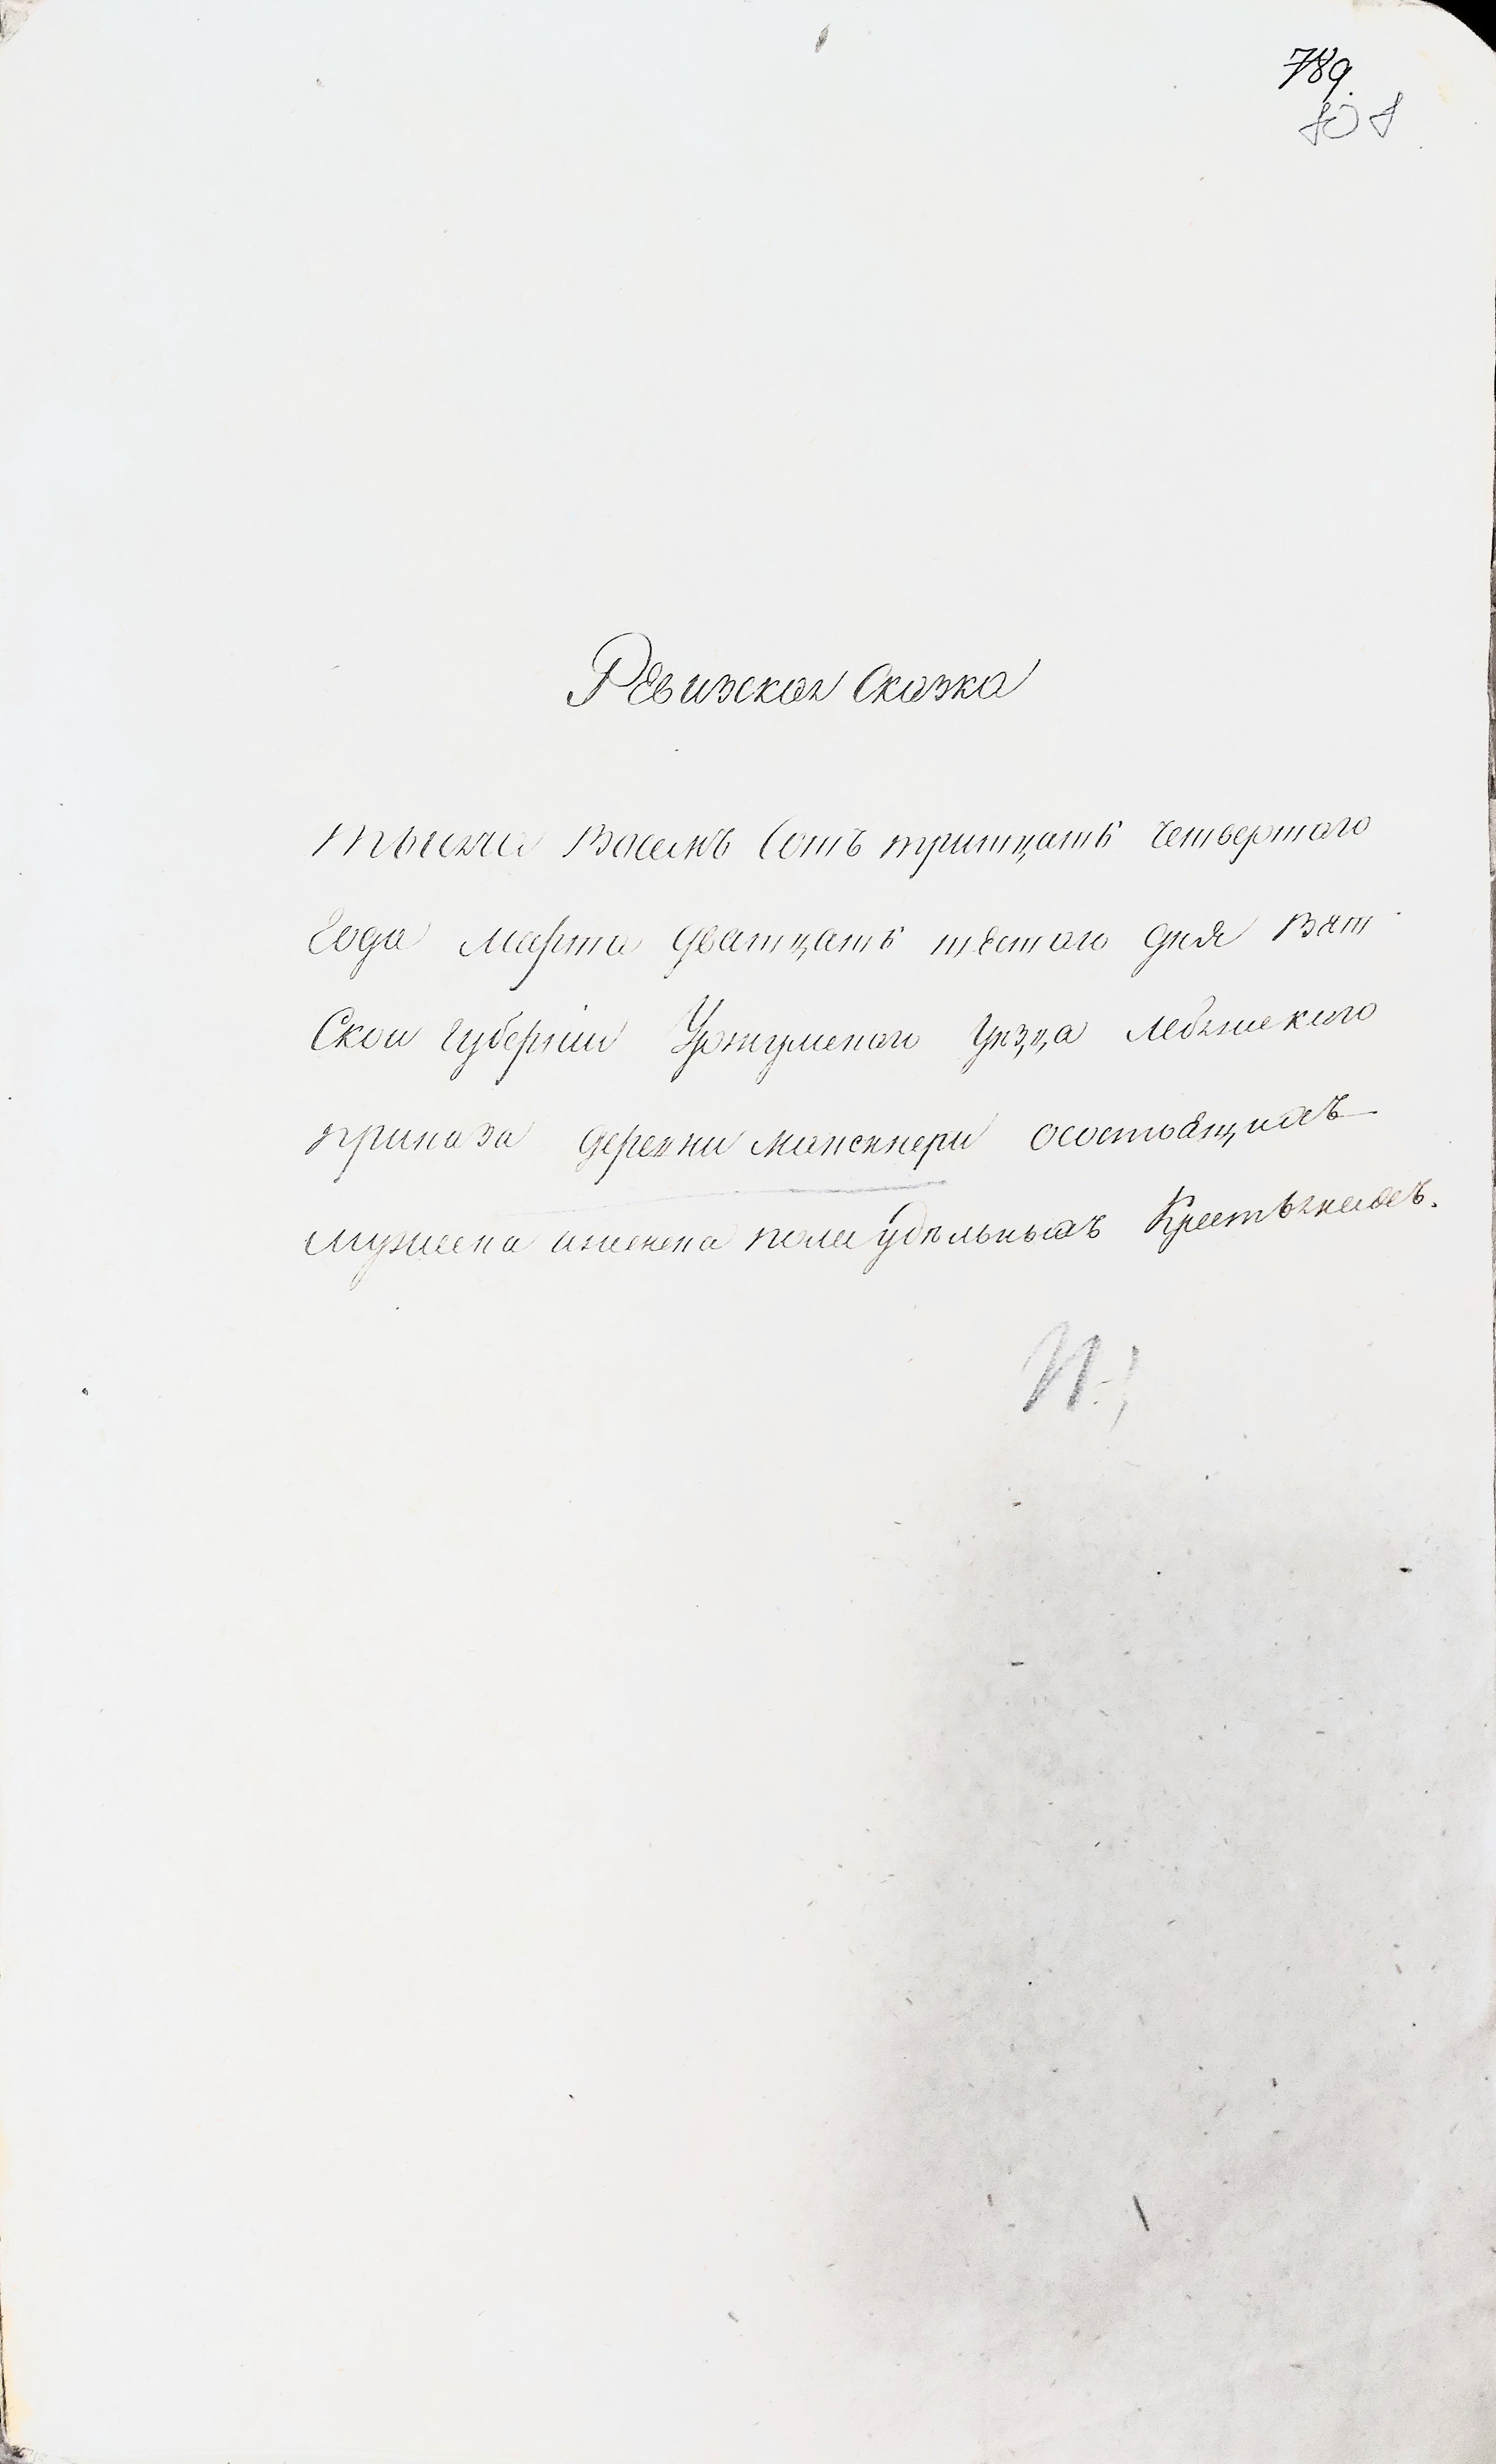 789.
Ревизская Сказка
тысяча Восемъ Сотъ тритцать четвертаго
Года марта дватцать шестого дня Вят
Скои губернии Уржумскаго Уезда лебяжскаго
приказа деревни осостоящихъ
мужеска иженска пола удельныхъ Крестьянехъ.